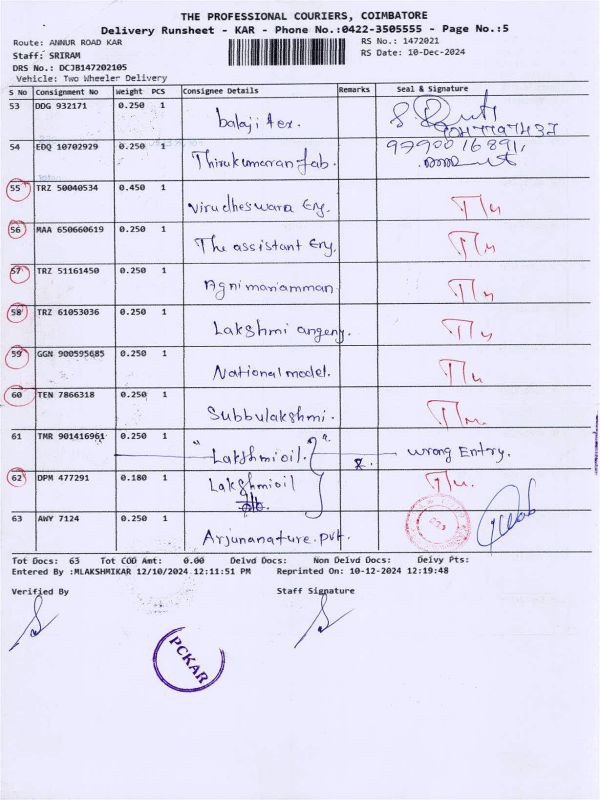 THE PROFESSIONAL COURIERS, COIMBATORE
Delivery Runsheet - KAR - Phone No.:0422-3505555 - Page No.:5
Route: ANNUR ROAD KAR RS No.: 1472021
Staff: SRIRAM RS Date: 10-Dec-2024
DRS No.: DCJB147202105
Vehicle: Two Wheeler Delivery
S No Consignment No Weight PCS Consignee Details Remarks Seal & Signature
53 DDG 932171 0.250 1 balaji tex.
54 EDQ 10702929 0.250 1 Thirukumaran fab. 9790016891,
55 TRZ 50040534 0.450 1 Virudheswara Eng.
56 MAA 650660619 0.250 1 The assistant Eng.
57 TRZ 51161450 0.250 1 Agni mariamman
58 TRZ 61053036 0.250 1 Lakshmi angeny.
59 GGN 900595685 0.250 1 National model.
60 TEN 7866318 0.250 1 Subbulakshmi.
61 TMR 901416961 0.250 1 Lakshmi oil. wrong Entry.
62 DPM 477291 0.180 1 Lakshmi oil
63 AWY 7124 0.250 1 Arjunanature. pvt.
Tot Docs: 63 Tot COD Amt: 0.00 Delvd Docs: Non Delvd Docs: Delvy Pts:
Entered By :MLAKSHMIKAR 12/10/2024 12:11:51 PM Reprinted On: 10-12-2024 12:19:48
Verified By Staff Signature
PCKAR